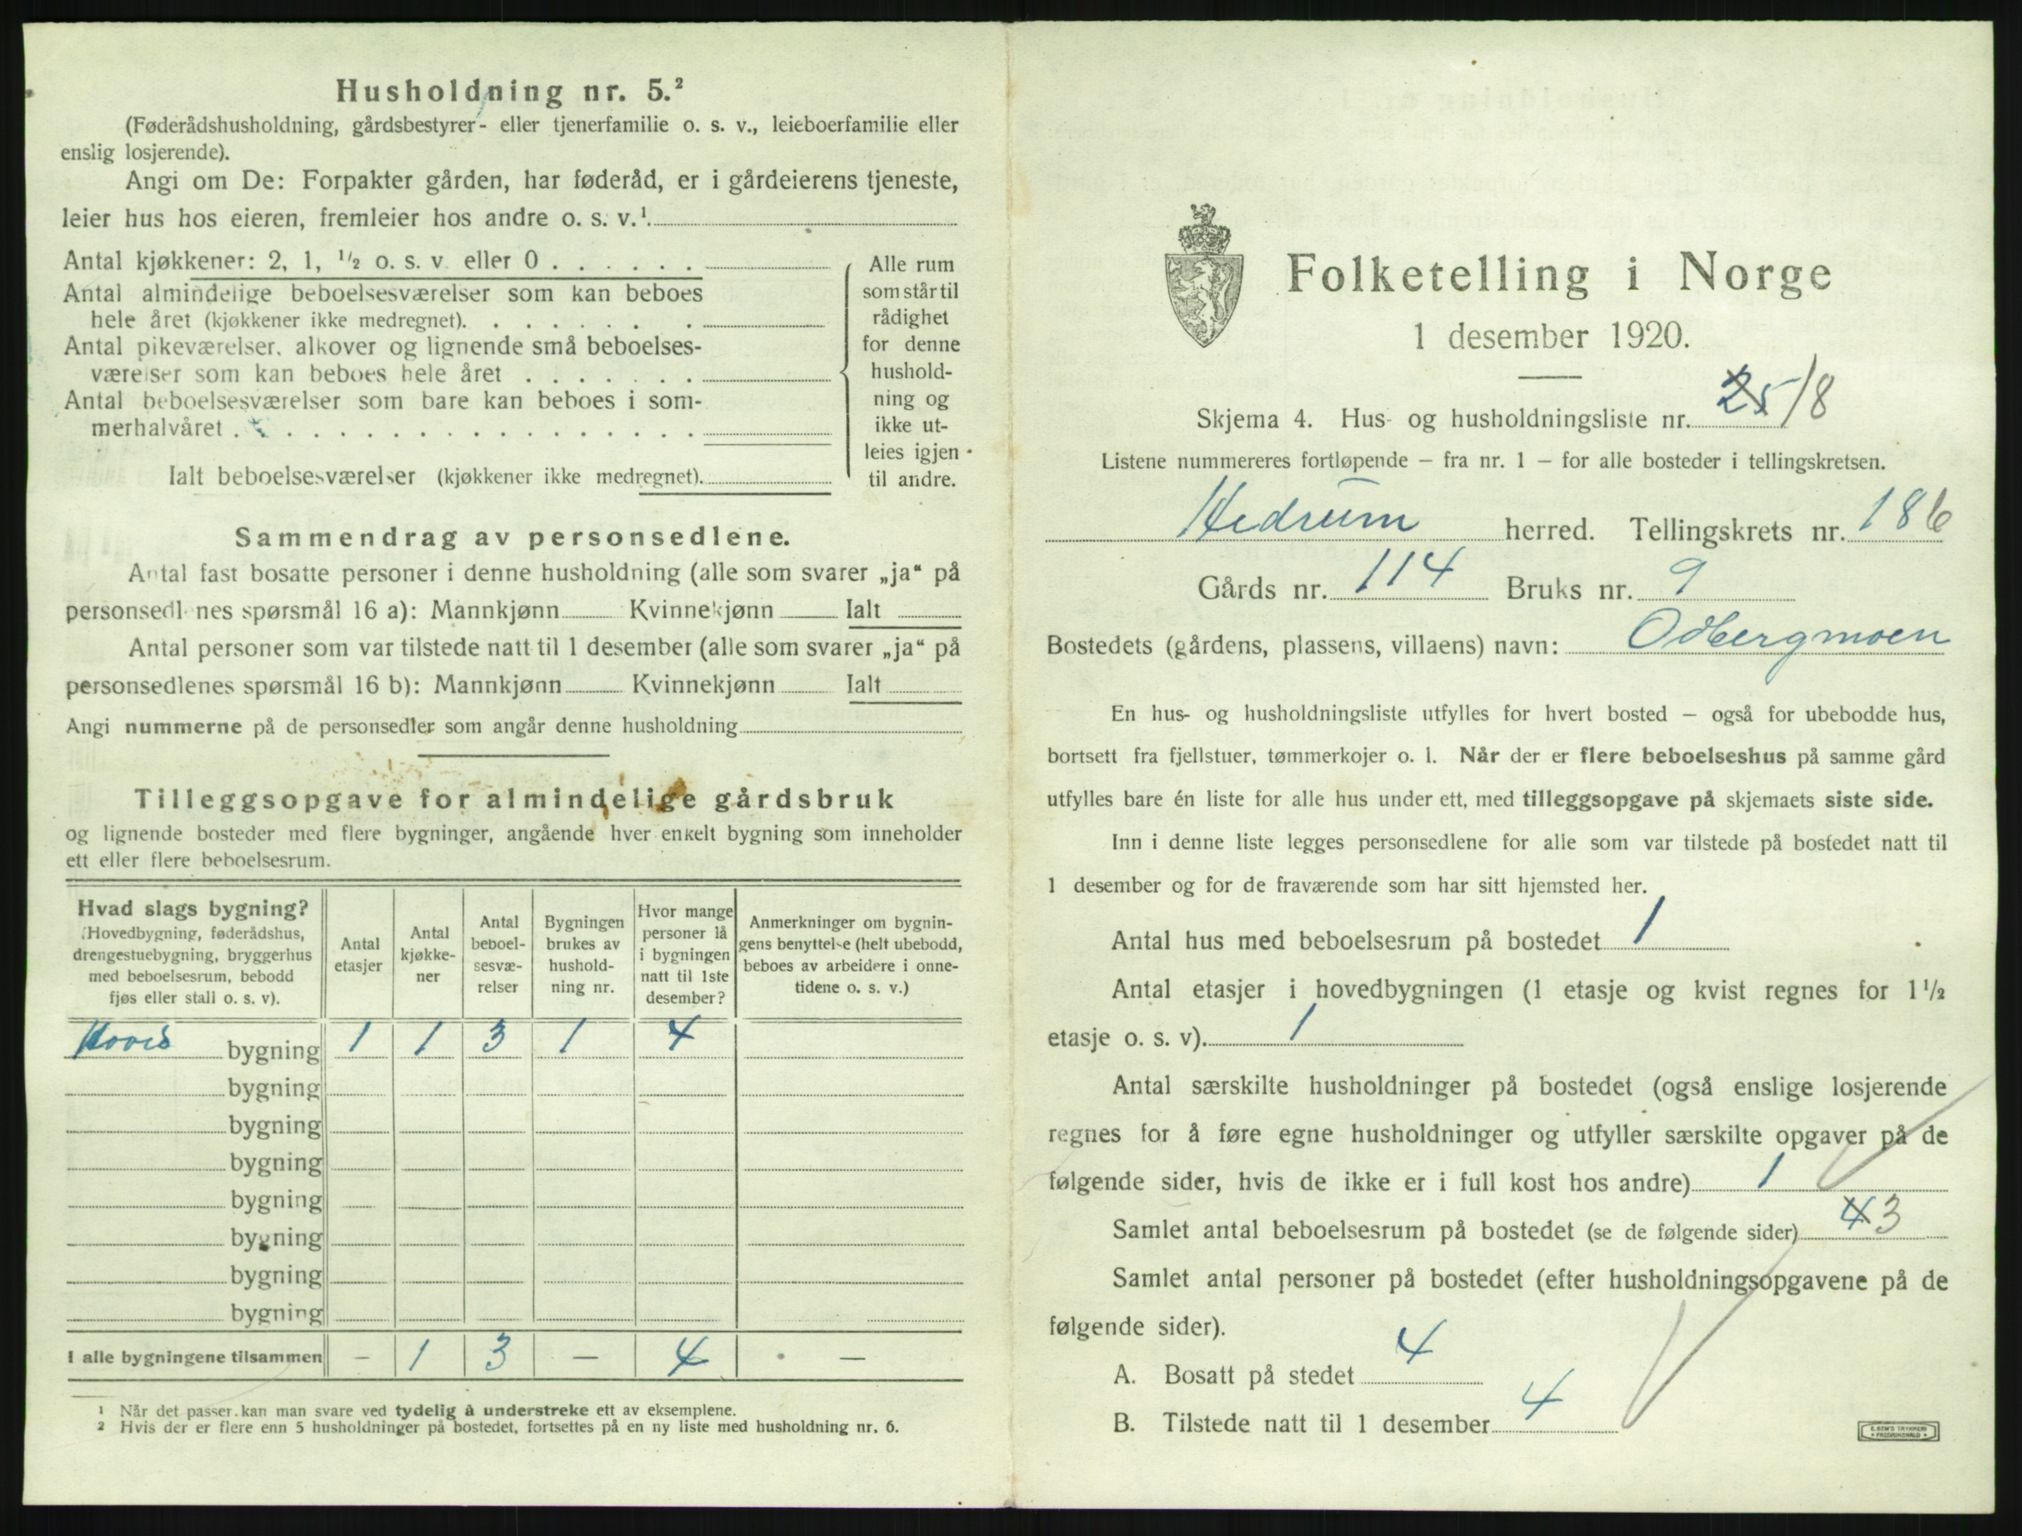 Husholdning nr. 5.²
(Føderådshusholdning, gårdsbestyrer- eller tjenerfamilie o. s. v., leieboerfamilie eller
enslig losjerende).
Angi om De: Forpakter gården, har føderåd, er i gårdeierens tjeneste,
leier hus hos eieren, fremleier hos andre o. s. v.¹
Antal kjøkkener: 2, 1, ½ o. s. v. eller 0 . . . . . .
Antal almindelige beboelsesværelser som kan beboes
hele året (kjøkkener ikke medregnet). . . . . . . .
Antal pikeværelser, alkover og lignende små beboelses-
værelser som kan beboes hele året . . . . . . .
Antal beboelsesværelser som bare kan beboes i som-
merhalvåret . . . . . . . . . . . . . . . . . .
Ialt beboelsesværelser (kjøkkener ikke medregnet).
Alle rum
som står til
rådighet
for denne
hushold-
ning og
ikke ut-
leies igjen
til andre.
Sammendrag av personsedlene.
Antal fast bosatte personer i denne husholdning (alle som svarer „ja“ på
personsedlenes spørsmål 16 a): Mannkjønn Kvinnekjønn Ialt
Antal personer som var tilstede natt til 1 desember (alle som svarer „ja“ på
personsedlenes spørsmål 16 b): Mannkjønn Kvinnekjønn Ialt
Angi nummerne på de personsedler som angår denne husholdning
Tilleggsopgave for almindelige gårdsbruk
og lignende bosteder med flere bygninger, angående hver enkelt bygning som inneholder
ett eller flere beboelsesrum.
Hvad slags bygning?
(Hovedbygning, føderådshus,
drengestuebygning, bryggerhus
med beboelsesrum, bebodd
fjøs eller stall o. s. v).
Antal
etasjer
Antal
kjøkke-
ner
Antal
beboel-
sesvæ-
relser
Bygningen
brukes av
hushold-
ning nr.
Hvor mange
personer lå
i bygningen
natt til 1ste
desember?
Anmerkninger om bygnin-
gens benyttelse (helt ubebodd,
beboes av arbeidere i onne-
tidene o. s. v.)
Hoved bygning 1 1 3 1 4
bygning
bygning
bygning
bygning
bygning
bygning
bygning
I alle bygningene tilsammen — 1 3 — 4 —
¹ Når det passer kan man svare ved tydelig å understreke ett av eksemplene.
² Hvis der er flere enn 5 husholdninger på bostedet, fortsettes på en ny liste med husholdning nr. 6.
Folketelling i Norge
1 desember 1920.
Skjema 4. Hus- og husholdningsliste nr. 25/8
Listene nummereres fortløpende – fra nr. 1 – for alle bosteder i tellingskretsen.
Hedrum herred. Tellingskrets nr. 186
Gårds nr. 114 Bruks nr. 9
Bostedets (gårdens, plassens, villaens) navn: Odbergmoen
En hus- og husholdningsliste utfylles for hvert bosted – også for ubebodde hus,
bortsett fra fjellstuer, tømmerkojer o. l. Når der er flere beboelseshus på samme gård
utfylles bare én liste for alle hus under ett, med tilleggsopgave på skjemaets siste side.
Inn i denne liste legges personsedlene for alle som var tilstede på bostedet natt til
1 desember og for de fraværende som har sitt hjemsted her.
Antal hus med beboelsesrum på bostedet 1
Antal etasjer i hovedbygningen (1 etasje og kvist regnes for 1½
etasje o. s. v). 1
Antal særskilte husholdninger på bostedet (også enslige losjerende
regnes for å føre egne husholdninger og utfyller særskilte opgaver på de
følgende sider, hvis de ikke er i full kost hos andre) 1
Samlet antal beboelsesrum på bostedet (se de følgende sider) 4 3
Samlet antal personer på bostedet (efter husholdningsopgavene på de
følgende sider).
A. Bosatt på stedet 4
B. Tilstede natt til 1 desember 4